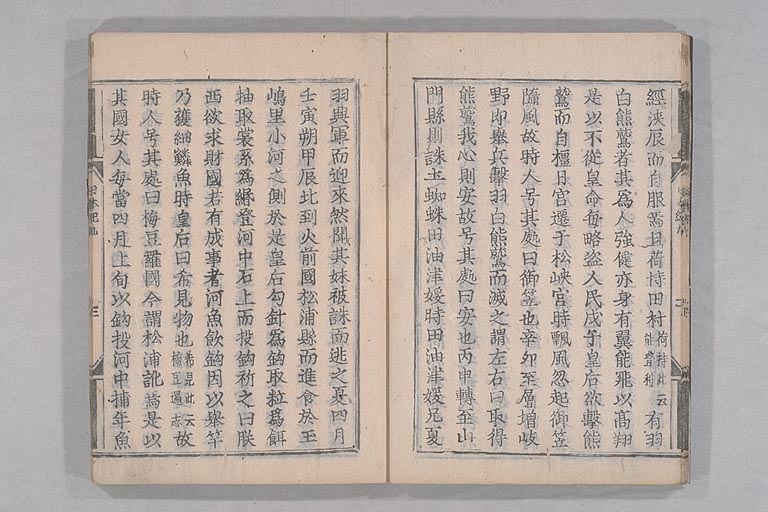 經浹辰而自服焉且荷持田村荷持此云能登利有羽
白熊鷲者其為人強健亦身有翼能飛以高翔
是以不從皇命每略盗人民戊子皇后欲擊熊
鷲而自橿日宮遷于松峽宮時飄風忽起御笠
隨風故時人号其處曰御笠也辛卯至層增岐
野即舉兵擊羽白熊鷲而滅之謂左右曰取得
熊鷲我心則安故号其處曰安也丙申轉至山
門縣則誅土蜘蛛田油津媛時田油津媛兄夏
羽興軍而迎來然聞其妹被誅而逃之夏四月
壬寅朔甲辰北到火前國松浦縣而進食於玉
嶋里小河之側於是皇后勾針為鈎取粒為餌
抽取裳糸為緡登河中石上而投鈎祈之曰朕
西欲求財國若有成事者河魚飲鈎因以舉竿
乃獲細鱗魚時皇后曰希見物也希見此云梅豆邏志故
時人号其處曰梅豆羅國今謂松浦訛焉是以
其國女人每當四月上旬以鈎投河中捕年魚